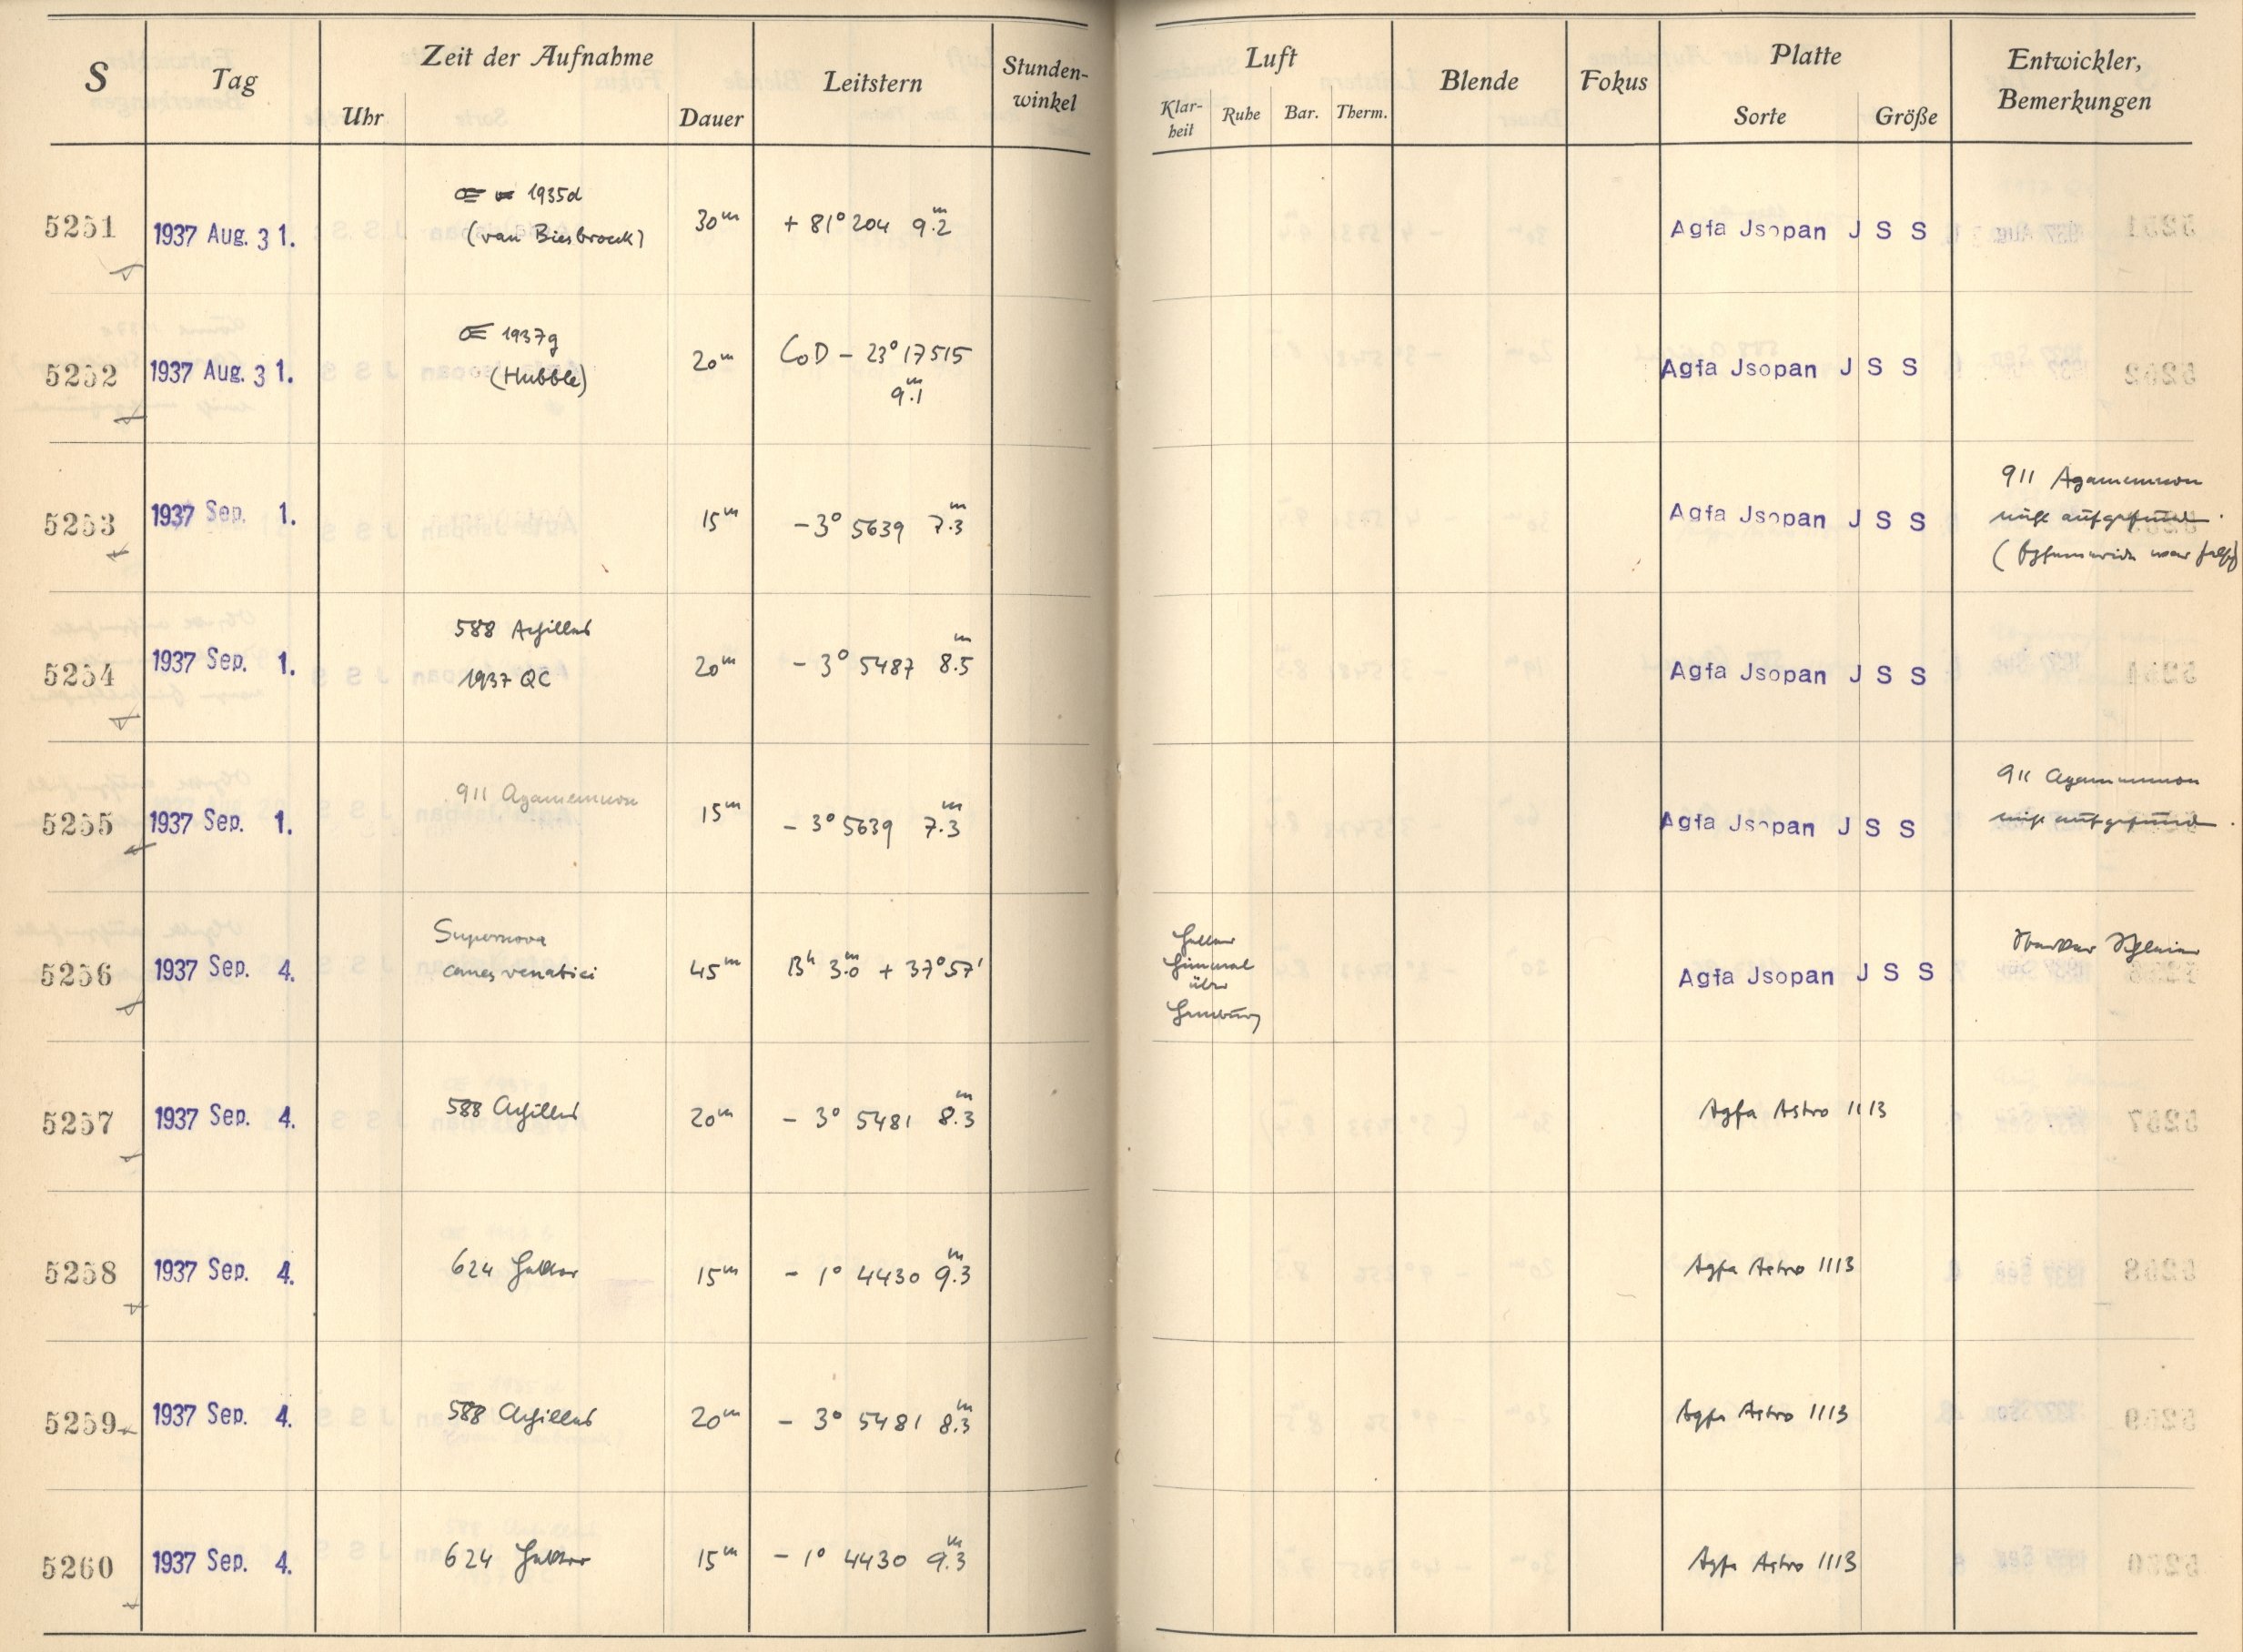 S Tag Zeit der Aufnahme Leitstern Stunden-winkel Luft Blende Fokus Platte Entwickler, Bemerkungen
Uhr Dauer Klar-heit Ruhe Bar. Therm. Sorte Größe
5251 1937 Aug. 31. 1935d 30m + 81° 204 9.2m Agfa Jsopan J S S
(van Biesbroeck)
5252 1937 Aug. 31. 1937g 20m CoD – 23° 17515 Agfa Jsopan J S S
(Hubble) 9.1m
5253 1937 Sep. 1. 15m – 3° 5639 7.3m Agfa Jsopan J S S 911 Agamemnon
nicht aufgefunden.
war falsch)
5254 1937 Sep. 1. 588 Achilles 20m – 3° 5487 8.5m Agfa Jsopan J S S
1937 QC
5255 1937 Sep. 1. 911 Agamemnon 15m – 3° 5639 7.3m Agfa Jsopan J S S 911 Agamemnon
nicht aufgefunden.
5256 1937 Sep. 4. Supernova canes venatici 45m 13h 3.0m + 37° 57' Heller Himmel über Hamburg Agfa Jsopan J S S Starker Schleier
5257 1937 Sep. 4. 588 Achilles 20m – 3° 5481 8.3m Agfa Astro 1113
5258 1937 Sep. 4. 624 Hektor 15m – 1° 4430 9.3m Agfa Astro 1113
5259 1937 Sep. 4. 588 Achilles 20m – 3° 5481 8.3m Agfa Astro 1113
5260 1937 Sep. 4. 624 Hektor 15m – 1° 4430 9.3m Agfa Astro 1113